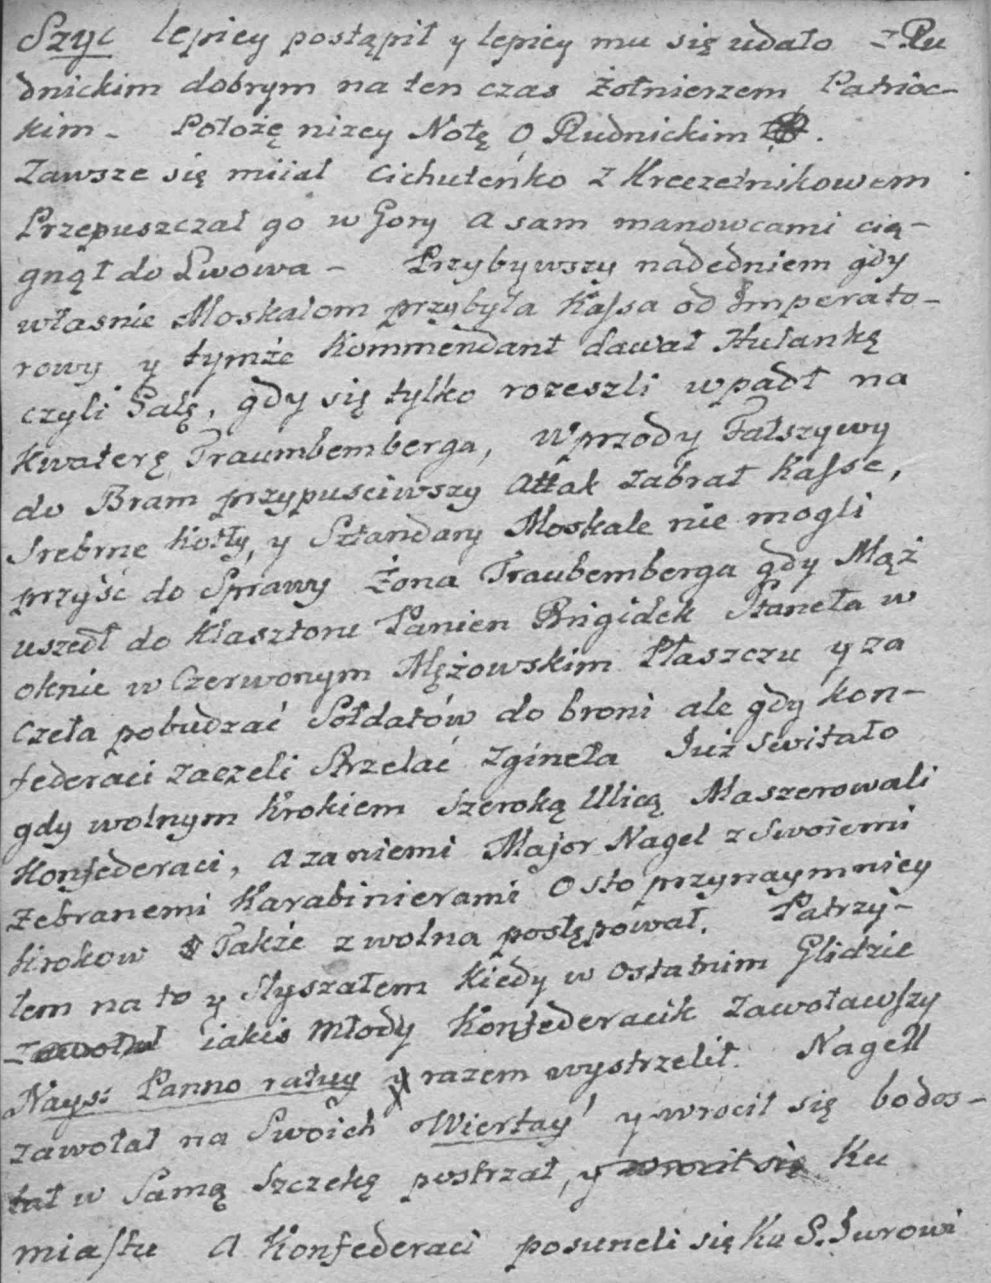 Szyc lepiey postąpił y lepiey mu się udało z Ru
dnickim dobrym na ten czas żołnierzem Patrioc-
kim – Położę niżey Notę o Rudnickim.
Zawsze się miiał cichuteńko z Kreczetnikowem
Przepuszczał go w Gory a sam manowcami cią-
gnął do Lwowa – Przybywszy nadedniem gdy
własnie Moskalom przybyła Kassa od Imperato-
rowy y tymże Kommendant dawał Hulankę
czyli Galę, gdy się tylko rozeszli wpadł na
Kwaterę Traumbemberga, wprzody Fałszywy
do Bram przypusciwszy Attak zabrał Kasse,
Srebrne Kotły, y Sztandary Moskale nie mogli
przyść do Sprawy Żona Traubemberga gdy Mąż
uszedł do Klasztoru Panien Brigidek Staneła w
oknie w Czerwonym Mężowskim Płaszczu y za
czeła pobudzać Sołdatów do broni ale gdy kon-
federaci zaczeli Strzelać zgineła Już Switało
gdy wolnym Krokiem Szeroką Ulicą Maszerowali
Konfederaci, a za niemi Major Nagel z Swoiemi
zebranemi Karabinierami o sto przynaymniey
Krokow Także zwolna postępował. Patrzy-
łem na to y Słyszałem kiedy w ostatnim Glidzie
zawołał iakis młody Konfederacik zawoławszy
Nays: Panno ratuy y razem wystrzelił. Nagell
zawołał na Swoich "Wiertay" y wrocił się bo dos-
tał w Samą Szczekę postrzał, y wrocił się Ku
miastu a Konfederaci posuneli się Ku S. Jurowi